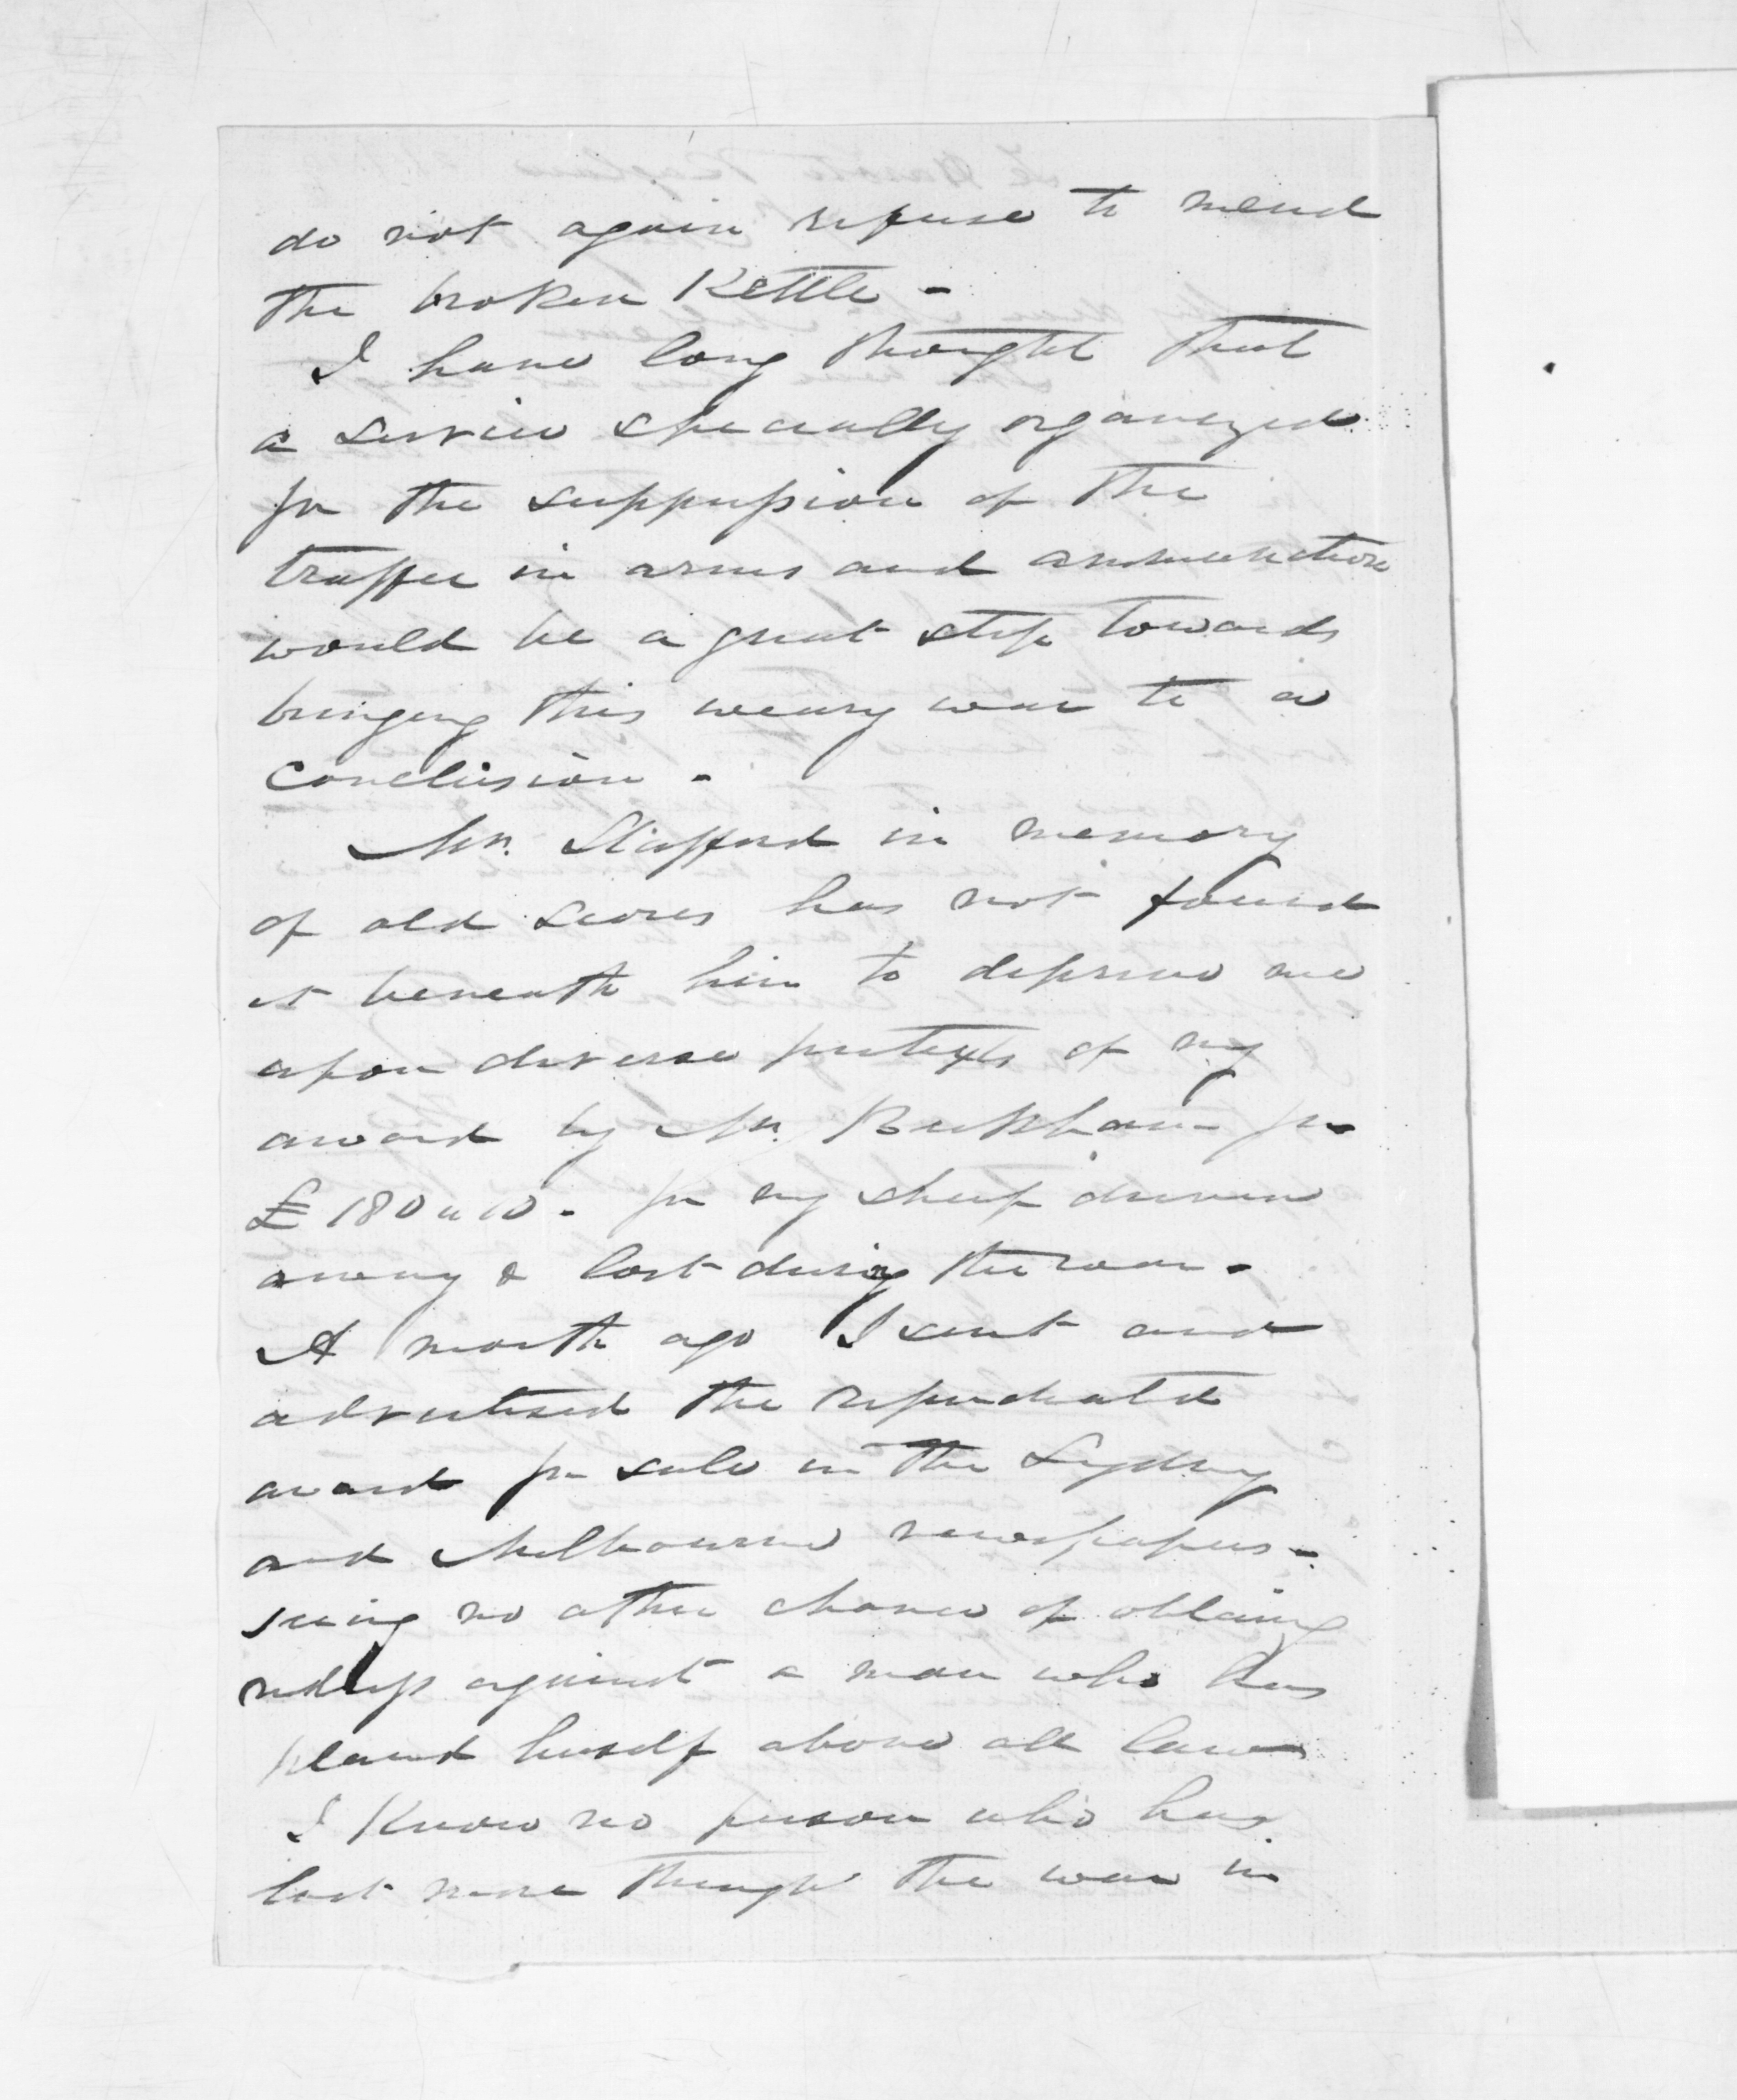 do not again refuse to mend
the broken Kettle -
I have long thought that
a service specially organized
for the suppression of the
traffic in arms and ammunition
would be a great step towards
bringing this weary war to a
conclusion -
Mr. Stafford in memory
of old scores has not found
it beneath him to deprive me
upon diverse pretexts of my
award by Mr. Beckham for
£180 " 10 - for my sheep driven
away & lost during the war -
A month ago I sent and
advertised the repudiated
award for sale in the Sydney
and Melbourne newspapers -
seeing no other chance of obtaining
redress against a man who has
placed himself above all law
I Know no person who has
lost more through the war in